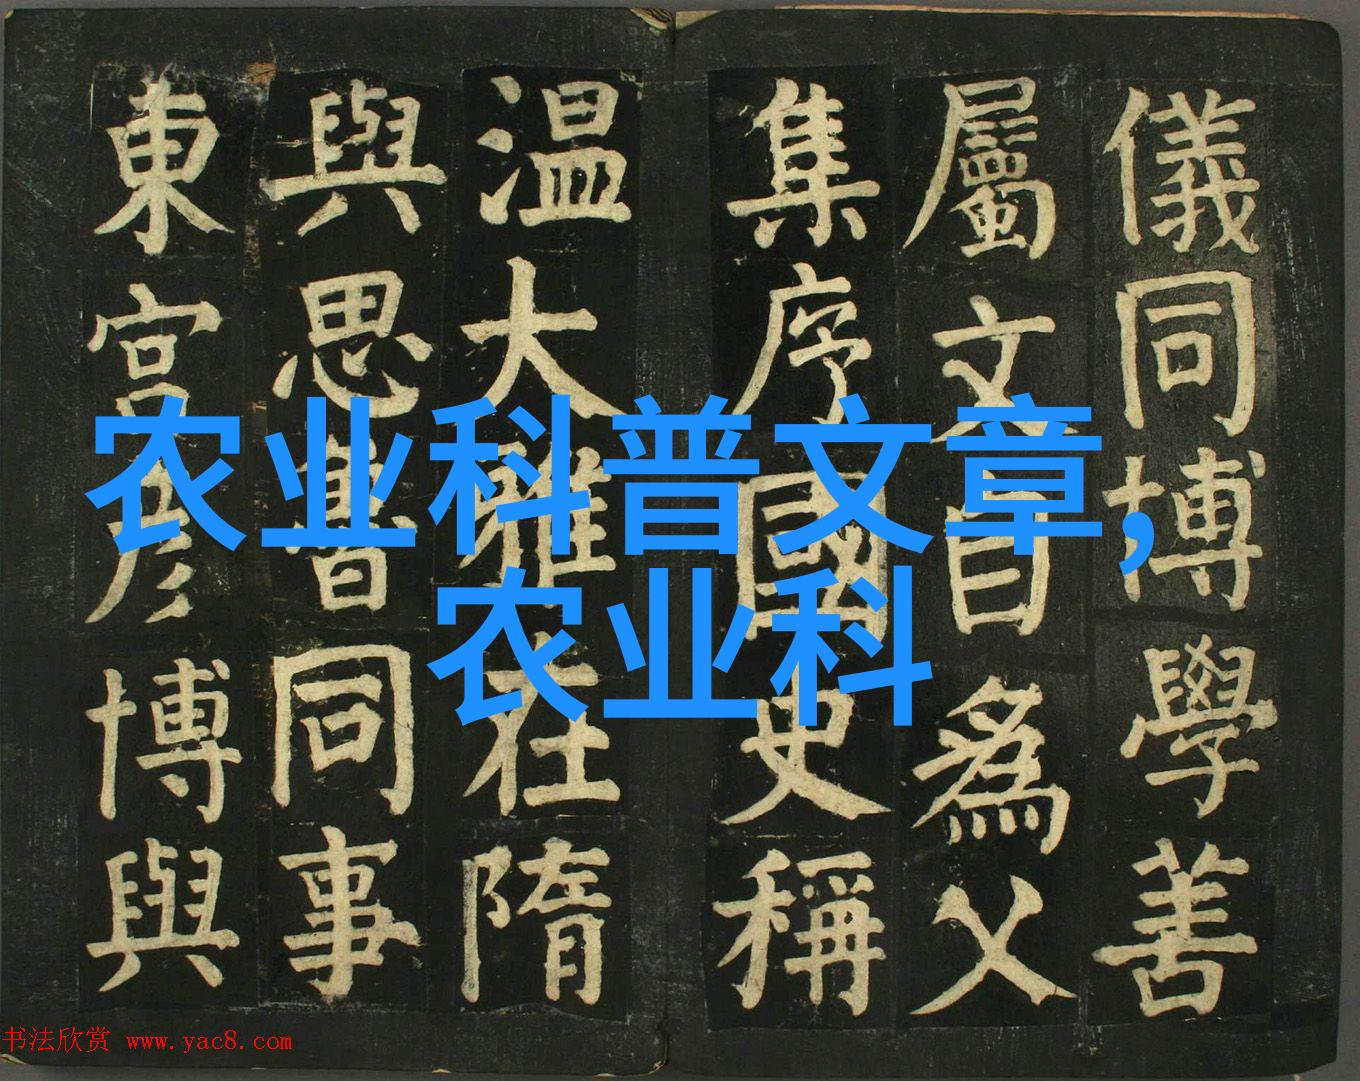 儀同博學善
屬文自為父
集序國史稱
温大雅在隋
與思魯同事
東宮彥博與
农业科普文章,
农业科
书法欣赏 www.yac8.com